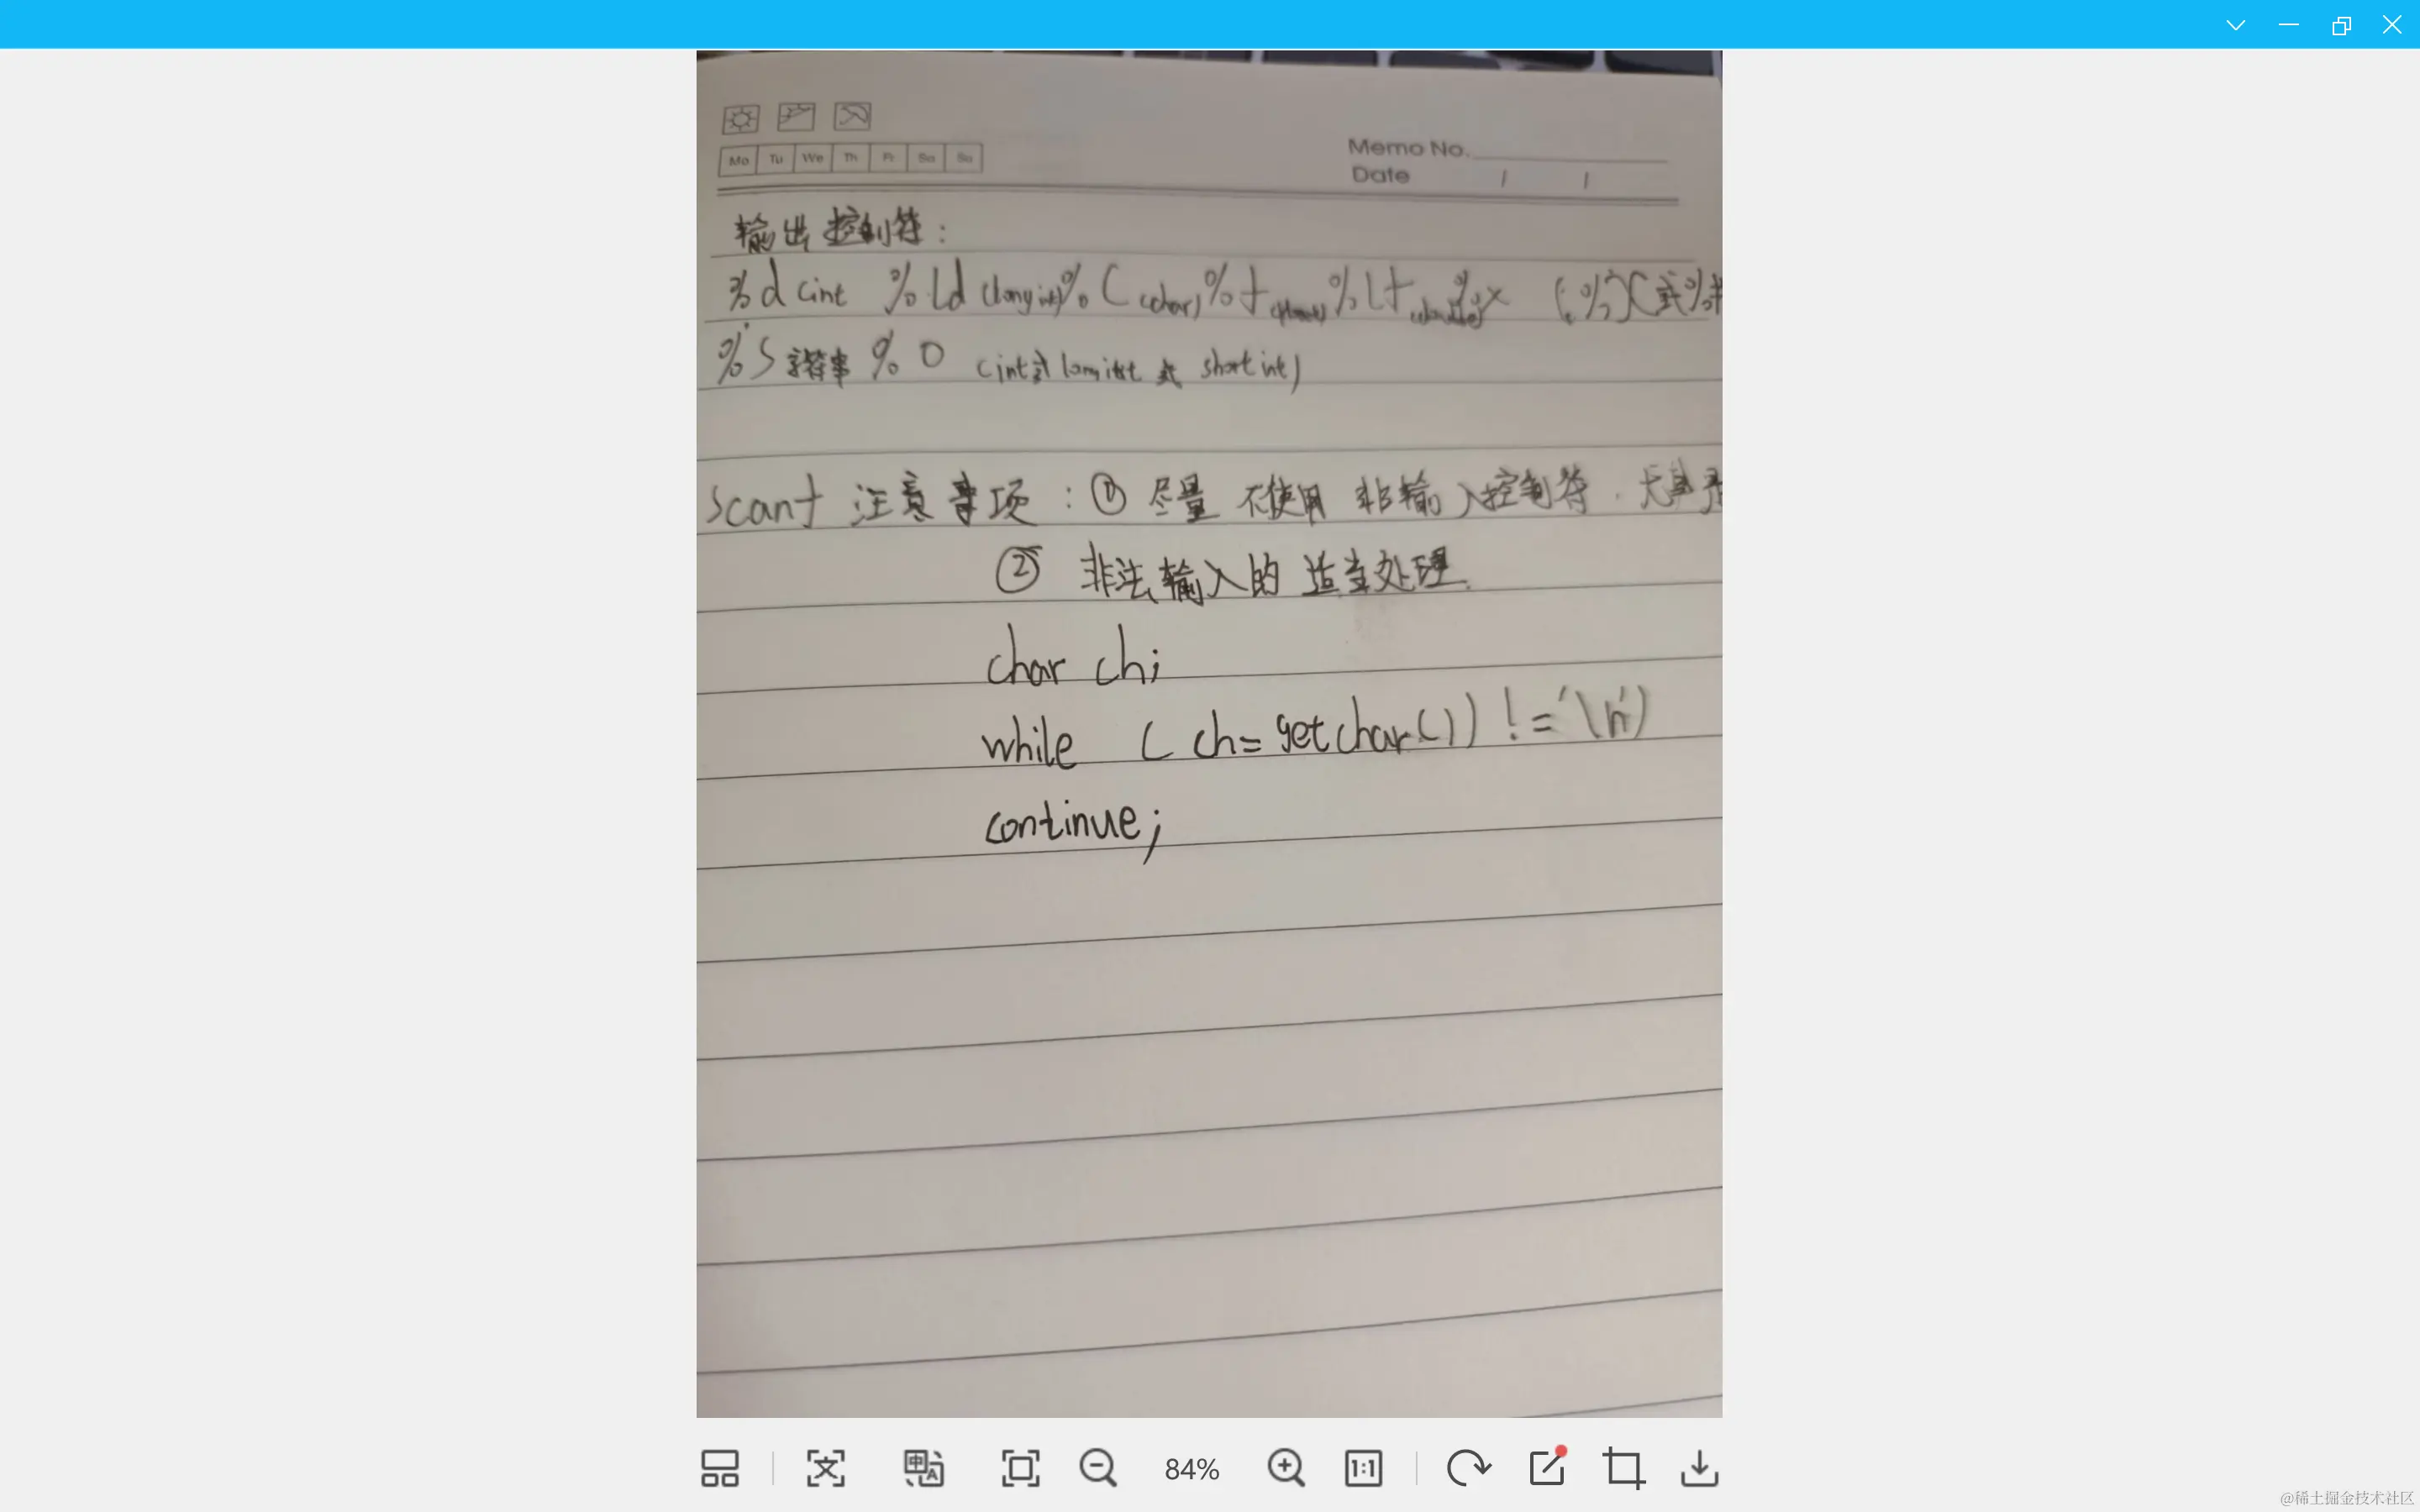 Mo Tu We Th Fr Sa Su
Memo No.
Date / /
输出控制符：
%d (int %Ld (long int) %C (char) %f %Lf %x
%S 字符串 %O (int或 long int 或 short int)
scanf 注意事项：① 尽量 不使用 非输入控制符．尤其
② 非法输入的 适当处理.
char ch;
while ( ch= getchar()) != '\n')
continue;
84%
1:1
@稀土掘金技术社区